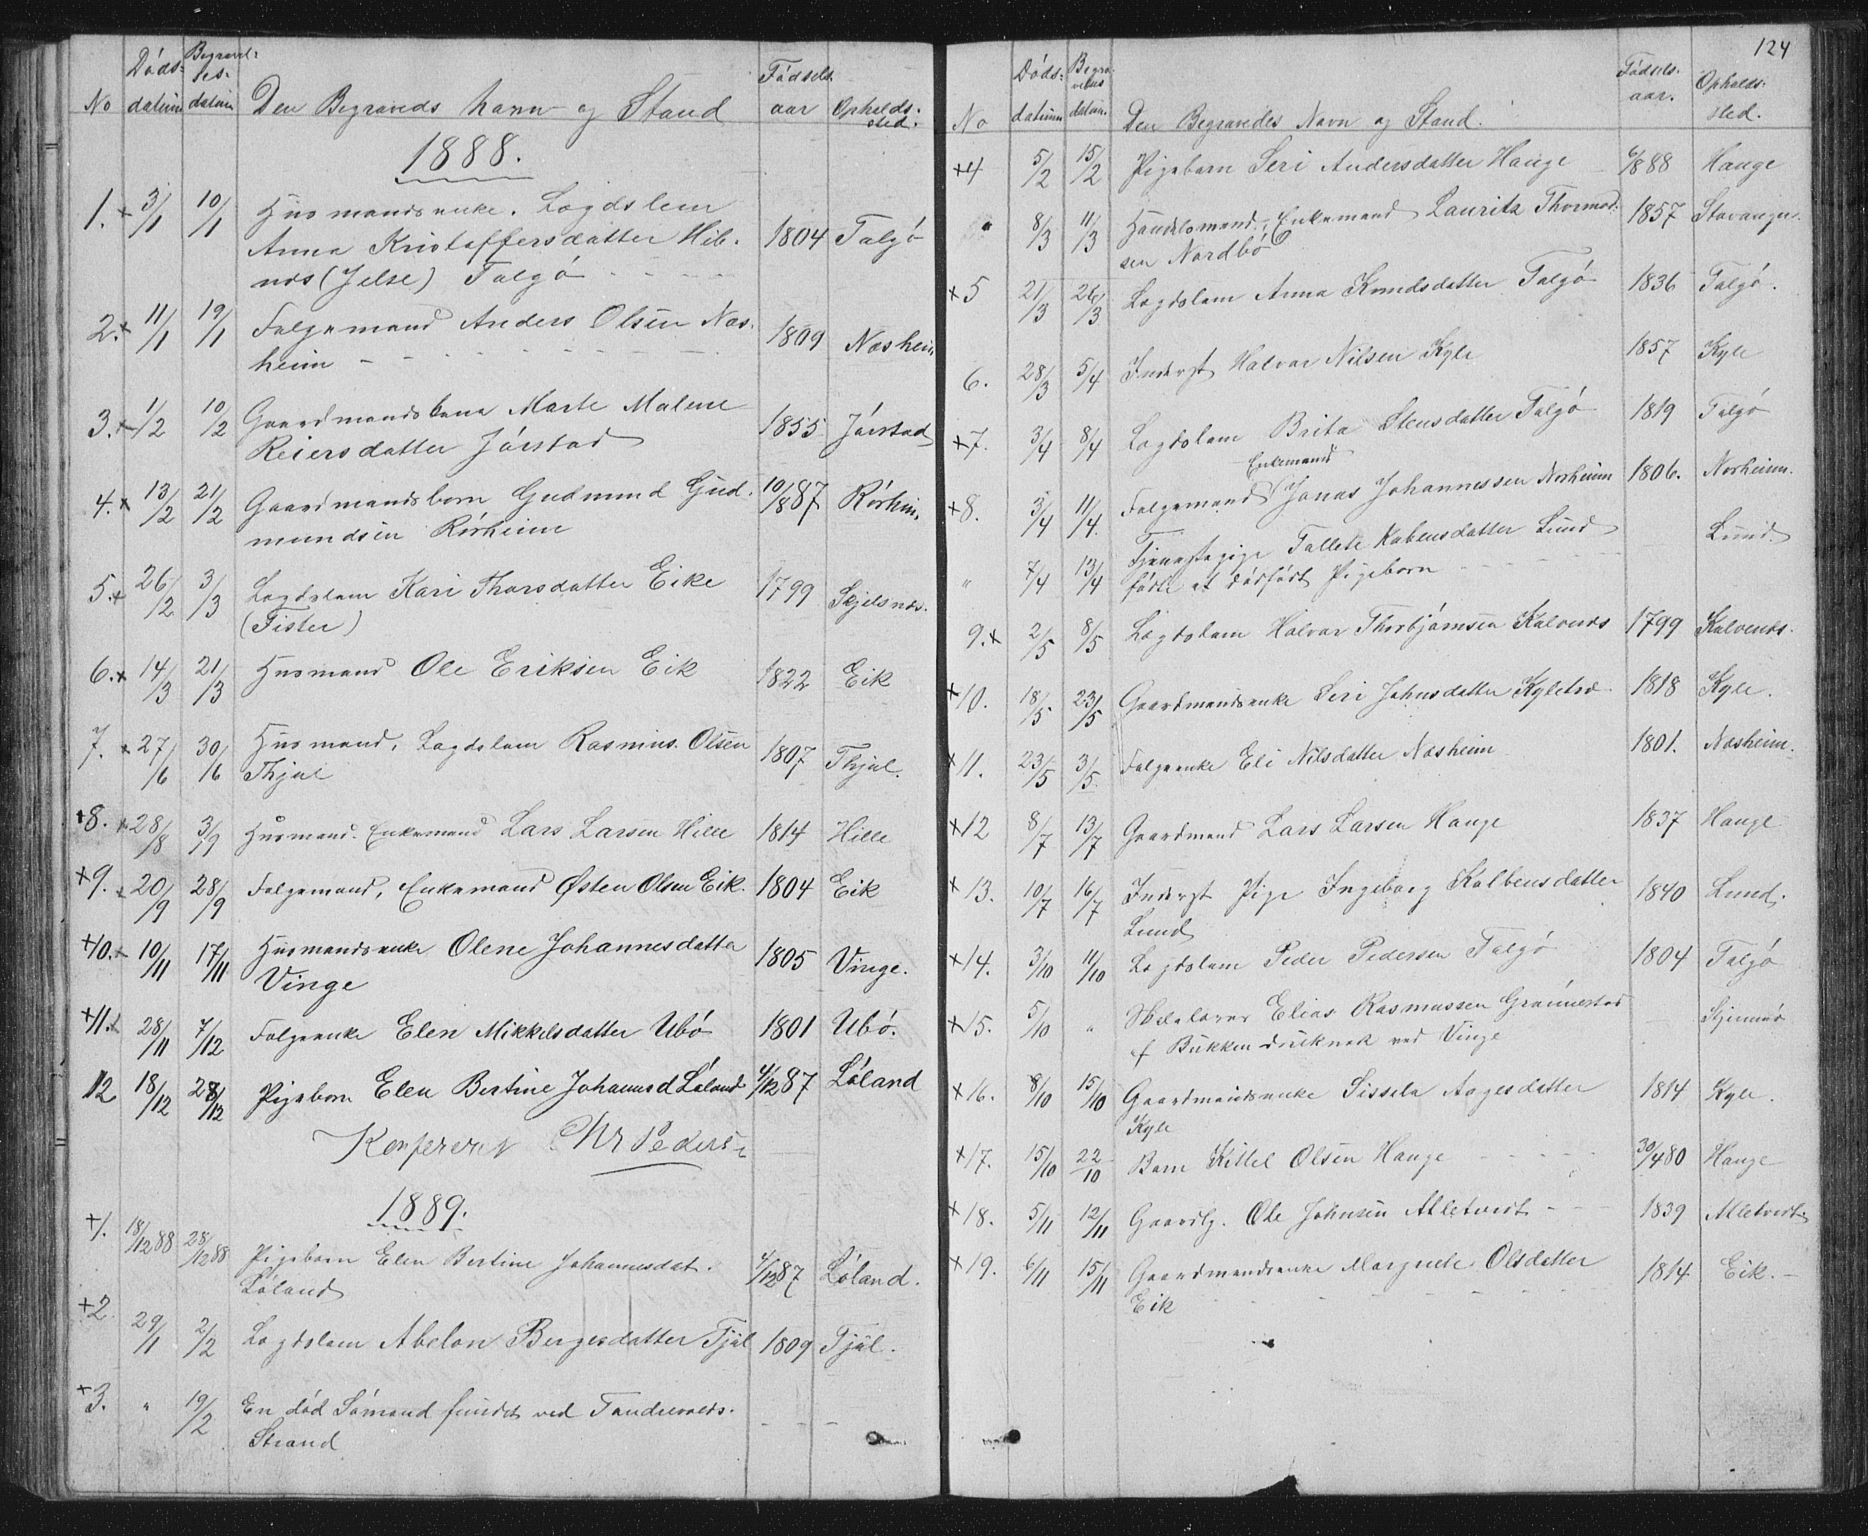 No Døds- datum Begravel- ses- datum Den Begraveds Navn og Stand Fødsels- aar Opholds- sted.
1888.
1. 3/1 10/1 Husmandsenke. Lægdslem
Anna Kristoffersdatter Hib-
nes (Jelse) Talgø 1804 Talgø
2. 11/1 19/1 Folgemand Anders Olsen Næs-
heim 1809 Næsheim
3. 1/2 10/2 Gaardmandskone Marte Malene
Reiersdatter Jørstad 1855 Jørstad
4. 13/2 21/2 Gaardmandsbarn Gudmund Gud-
mundsen Rørheim 10/8 87 Rørheim
5. 26/2 3/3 Lægdslem Kari Thorsdatter Eike
(Fister) 1799 Skjelsnæs.
6. 14/3 21/3 Husmand Ole Eriksen Eik 1822 Eik
7. 27/6 30/6 Husmand, Lægdslem Rasmus Olsen
Thjul 1807 Thjul.
8. 28/8 3/9 Husmand. Enkemand Lars Larsen Hille 1814 Hille
9. 20/9 28/9 Folgemand, Enkemand Østen Olsen Eik. 1804 Eik
10. 10/11 17/11 Husmandsenke Olene Johannesdatter
Vinge 1805 Vinge.
11. 28/11 7/12 Folgeenke Elen Mikkelsdatter Ubø 1801 Ubø.
12 18/12 28/12 Pigebarn Elen Bertine Johannesd Løland 4/12 87 Løland
Konfereret Chr Peders
1889.
1. 18/12 88 28/12 88 Pigebarn Elen Bertine Johannesdat.
Løland 4/12 87 Løland.
2. 29/1 2/2 Lægdslem Abelon Bergesdatter Tjul 1809 Tjul.
3. " 19/2 En død Sømand fundet ved
Strand
124
No Døds- datum Begra- velses datum. Den Begravedes Navn og Stand. Fødsels- aar. Opholds- sted.
4 5/2 15/2 Pigebarn Seri Andersdatter Hauge 88 Hauge
8/3 11/3 Handelsmand, Enkemand Lauritz Thormod-
sen Nordbø 1857 Stavanger.
5 21/3 26/3 Lægdslem Anna Knudsdatter Talgø 1836 Talgø.
6. 28/3 5/4 Inderst Halvar Nilsen Kyle 1857 Kyle
7. 3/4 8/4 Lægdslem Brita Stensdatter Talgø 1819 Talgø
Enkemand
8. 3/4 11/4. Folgemand Jonas Johannessen Norheim 1806. Norheim.
" 7/4 13/4 Tjenestepige Tallete Kabensdatter Lund
fødte et dødfødt Pigebarn Lund.
9. 2/5 8/5 Lægdslem Halvar Thorbjørnsen Kalvenes 1799 Kalvenes.
10. 18/5 23/5 Gaardmandsenke Seri Johnsdatter 1818 Kyle.
11. 23/5 3/5 Folgeenke Eli Nilsdatter Næsheim 1801. Næsheim.
12 8/7 13/7 Gaardmand Lars Larsen Hauge 1837 Hauge
13. 10/7 16/7 Inderst Pige Ingeborg Kolbensdatter
Lund 1840 Lund.
14. 3/10 11/10 Lægdslem Peder Pedersen Talgø 1804 Talgø
15. 5/10 " Elias Rasmussen
f Bukken druknet ved Vinge
16. 8/10 15/10 Gaardmandsenke Sissela Aagesdatter
Kyle 1814 Kyle.
17. 15/10 22/10 Barn Kittel Olsen Hauge 30/4 80 Hauge
18. 5/11 12/11 Gaardbg. Ole Johnsen Mletveit 1839 Mletveit
19. 6/11 15/11 Gaardmandsenke Margrete Olsdatter
Eik 1814 Eik.